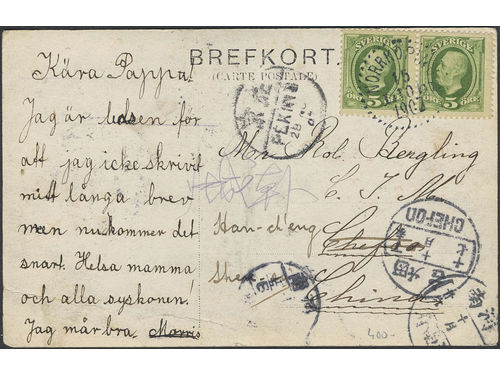 BREFKORT.
(CARTE POSTALE)
Kära Pappa!
Jag är ledsen för
att jag icke skrivit
mitt långa brev
men nu kommer det
snart. Helsa mamma
och alla syskonen.
Jag mår bra. Morris
Mr Rol. Bergling
C. I. M.
Han-ch'eng
Chefoo
She
China
SVERIGE
5 ÖRE 5
SVERIGE
5 ÖRE 5
PEKING
CHEFOO
400-